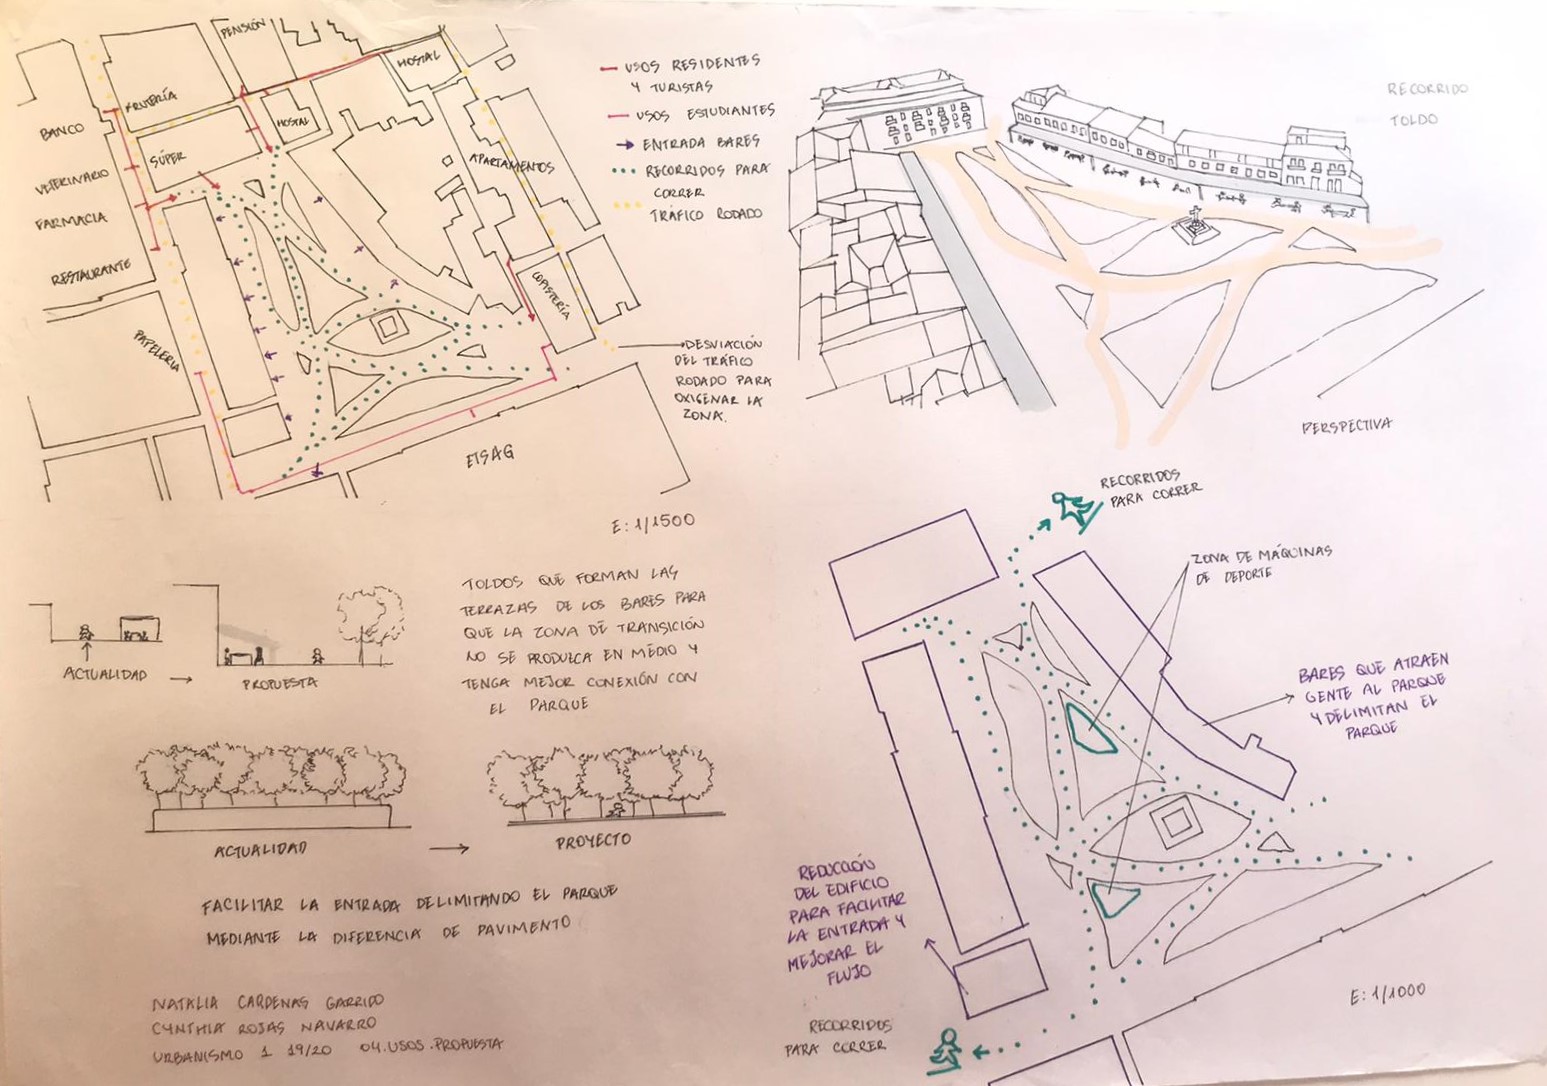 PENSIÓN
HOSTAL
FRUTERÍA
BANCO
HOSTAL
SÚPER
APARTAMENTOS
VETERINARIO
FARMACIA
RESTAURANTE
COPISTERÍA
PAPELERIA
ETSAG
E: 1/1500
USOS RESIDENTES
Y TURISTAS
USOS ESTUDIANTES
ENTRADA BARES
RECORRIDOS PARA
CORRER
TRÁFICO RODADO
DESVIACIÓN
DEL TRÁFICO
RODADO PARA
OXIGENAR LA
ZONA.
RECORRIDO
TOLDO
PERSPECTIVA
ACTUALIDAD
PROPUESTA
TOLDOS QUE FORMAN LAS
TERRAZAS DE LOS BARES PARA
QUE LA ZONA DE TRANSICIÓN
NO SE PRODUZCA EN MEDIO Y
TENGA MEJOR CONEXIÓN CON
EL PARQUE
ACTUALIDAD
PROYECTO
FACILITAR LA ENTRADA DELIMITANDO EL PARQUE
MEDIANTE LA DIFERENCIA DE PAVIMENTO
NATALIA CARDENAS GARRIDO
CYNTHIA ROJAS NAVARRO
URBANISMO 1 19/20 04.USOS.PROPUESTA
RECORRIDOS
PARA CORRER
ZONA DE MÁQUINAS
DE DEPORTE
BARES QUE ATRAEN
GENTE AL PARQUE
Y DELIMITAN EL
PARQUE
REDUCCIÓN
DEL EDIFICIO
PARA FACILITAR
LA ENTRADA Y
MEJORAR EL
FLUJO
RECORRIDOS
PARA CORRER
E: 1/1000